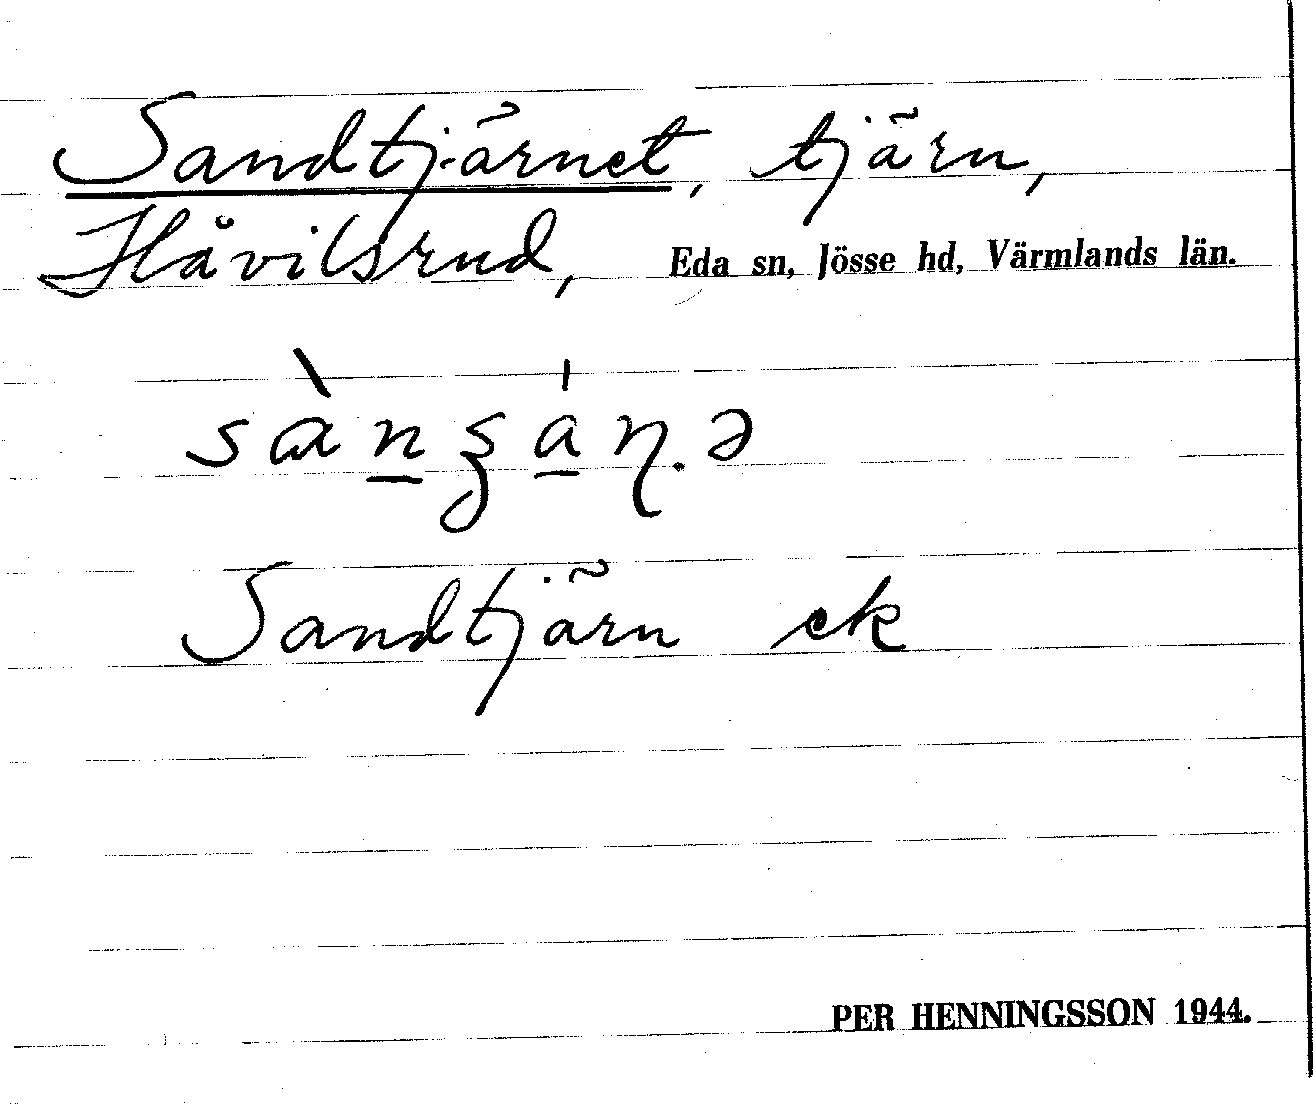 Sandtjärnet, tjärn,
Håvilsrud, Eda sn, Jösse hd, Värmlands län.
Sandtjärn ek
PER HENNINGSSON 1944.